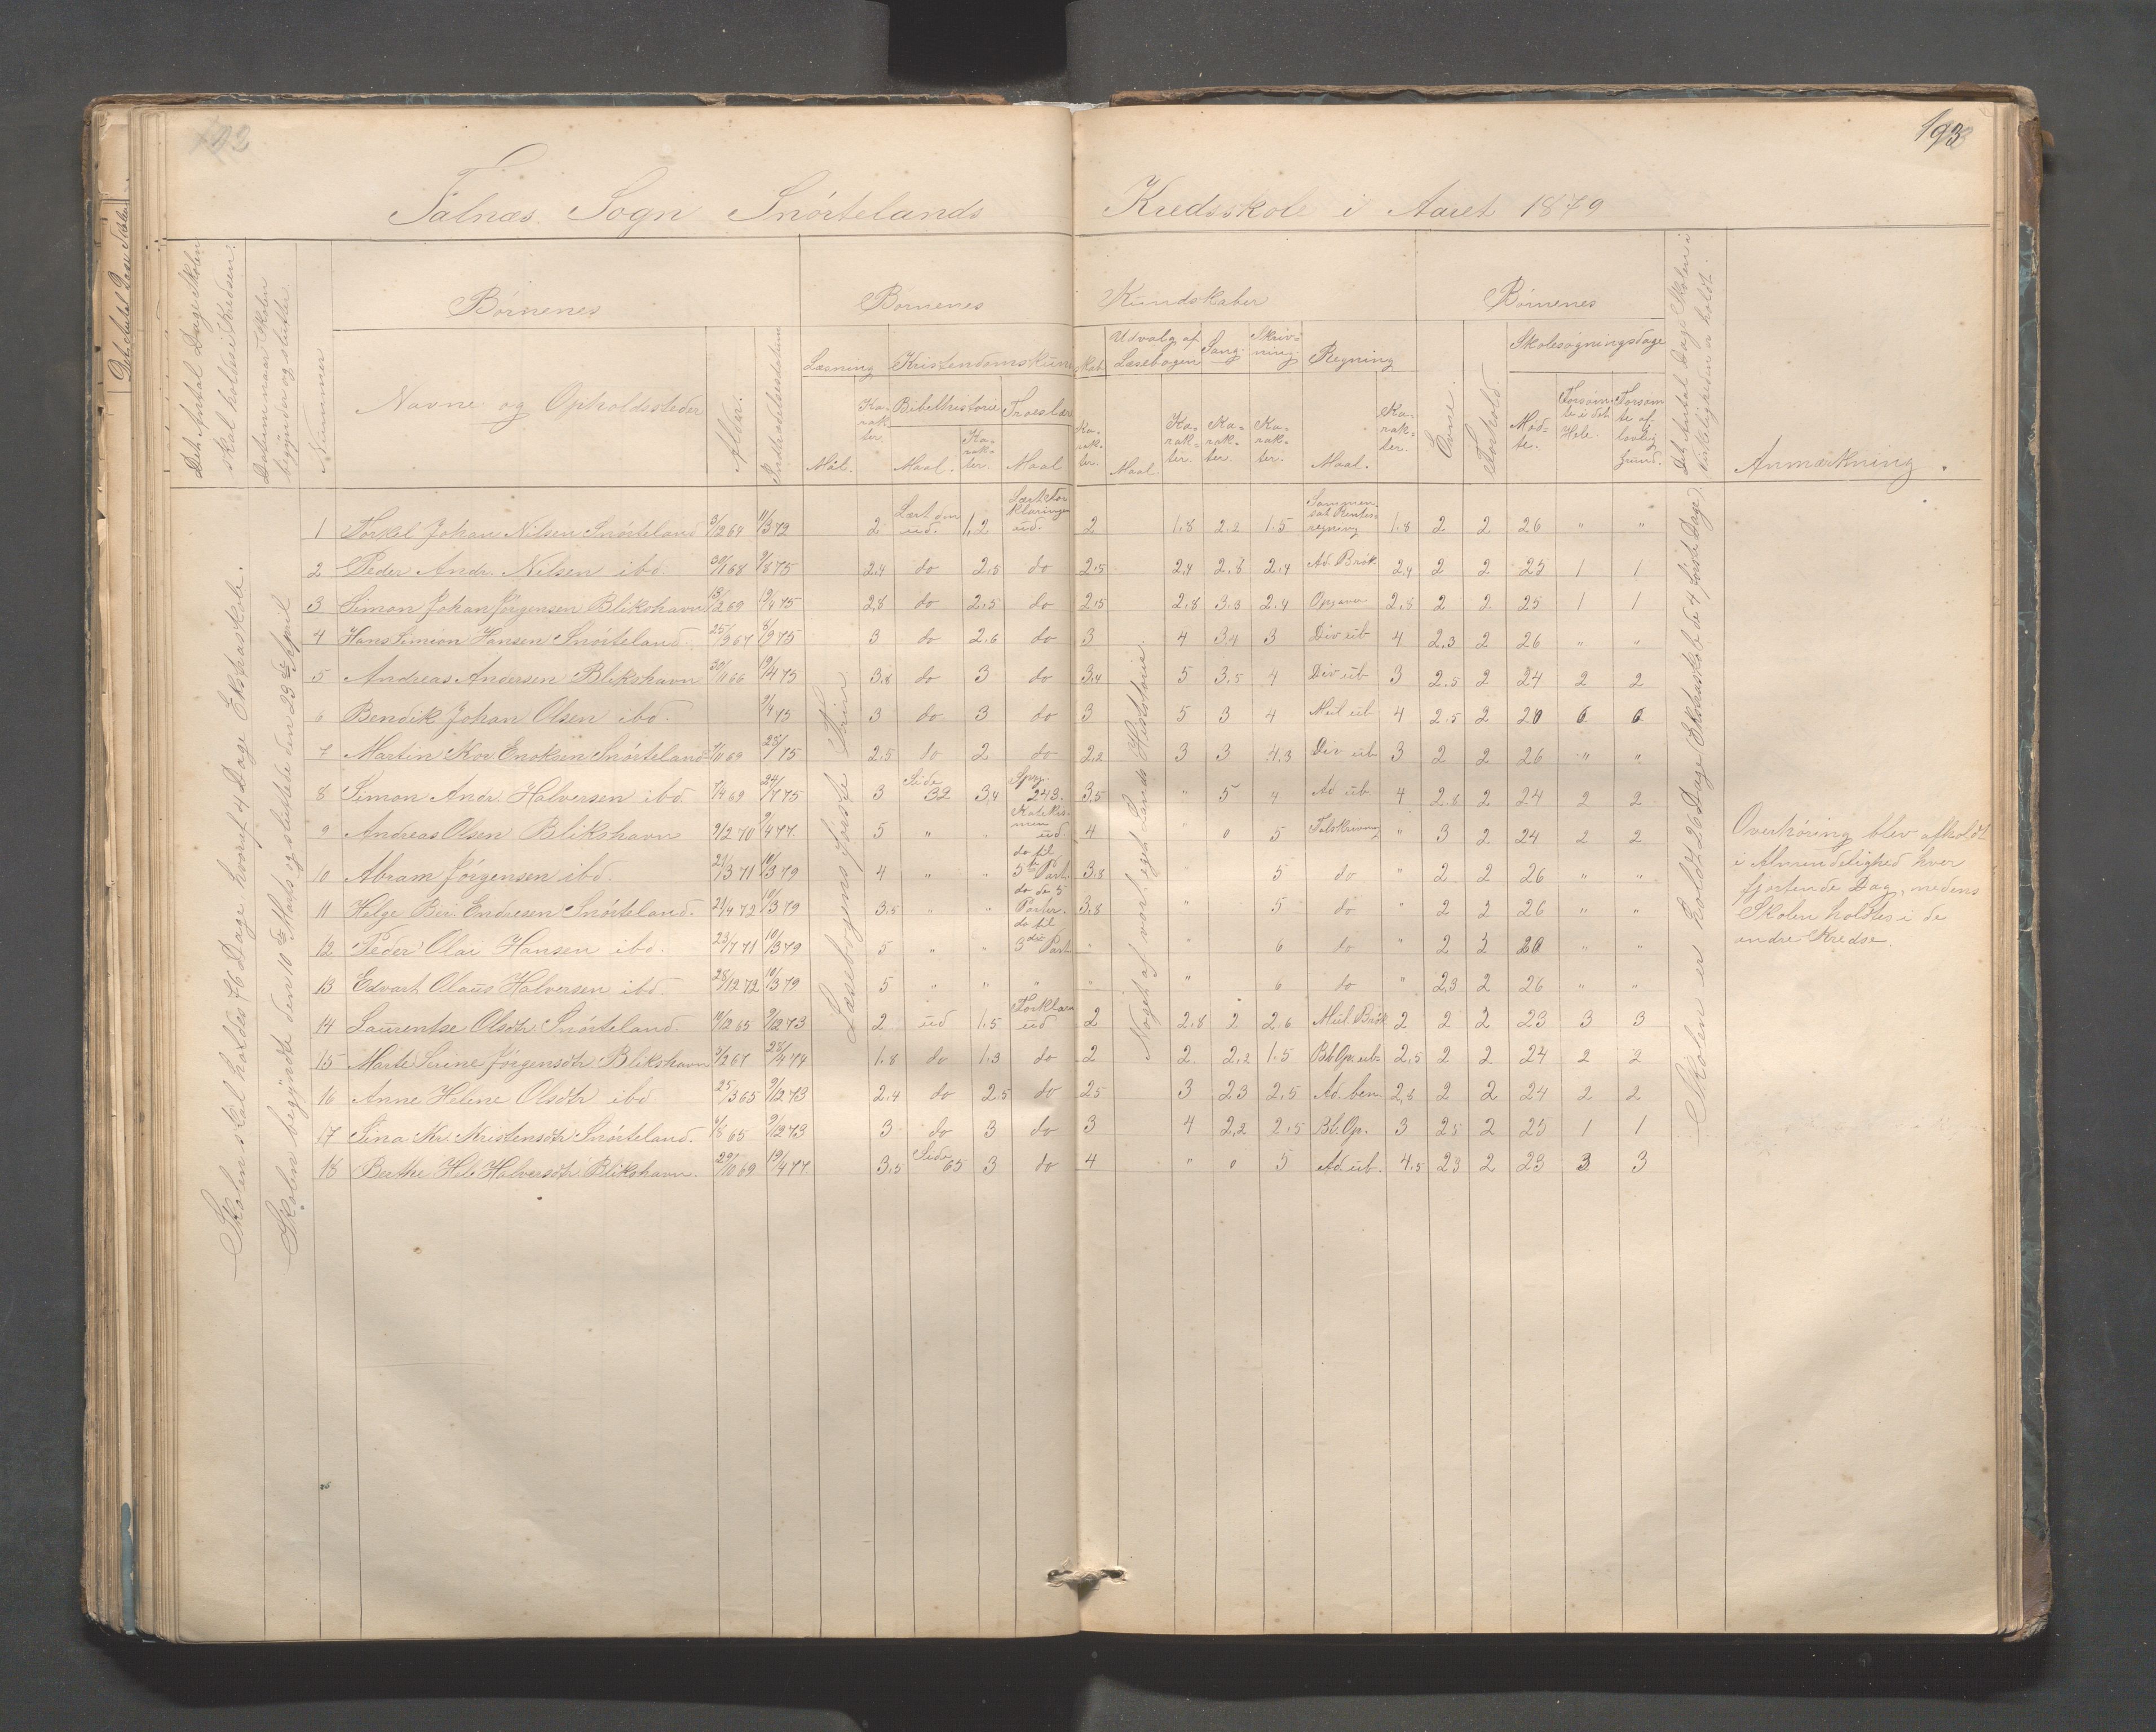 192
193
Falnæs Sogn Snørtelands Kredsskole i Aaret 1879
Det Antal Dage Skolen skal holdes i Kredsen.
Datum naar Skolen begynder og slutter.
Nummer
Børnenes
Navne og Opholdssteder
Alder.
Indtrædelsesdatum
Børnenes Kundskaber
Læsning
Maal.
Karakter.
Kristendomskundskab
Bibelhistorie
Maal.
Karakter.
Troeslære
Maal
Karakter.
Udvalg af Læsebogen
Maal.
Karakter.
Sang.
Karakter.
Skrivning.
Karakter.
Regning
Maal.
Karakter.
Børnenes
Evne.
Forhold.
Skolesøgningsdage
Mødte.
Forsømte i det Hele.
Forsømte af lovlig Grund.
Det Antal Dage Skolen i Virkeligheden er holdt.
Anmærkning.
Skolen skal holdes 76 Dage hvoraf 4 Dage Ekstraskole.
Skolen begyndte den 10de Marts og sluttede den 23de April
Læsebogens første Trin
Noget af vort eget Lands Historie.
Skolen er holdt 26 Dage (Ekstraskole de 4 første Dage)
1 Torkel Johan Nilsen Snørteland 3/12 64 11/3 72 2 Lært den ud. 1,2 Lært Forklaringen ud. 2 1.8 2.2 1.5 Sammensat Rentesregning 1.8 2 2 26 " "
2 Peder Andr. Nilsen ibd. 30/1 68 9/8 75 2.4 do 2.5 do 2.5 2.4 2.8 2.4 Ad. Brøk 2.4 2 2 25 1 1
3 Simon Johan Jørgensen Blikshavn 13/2 69 19/4 75 2.8 do 2.5 do 2.5 2.8 3.3 2.4 Opgaver 2.8 2 2 25 1 1
4 Hans Simion Hansen Snørteland 25/9 67 6/9 75 3 do 2.6 do 3 4 3.4 3 Div ub 4 2.3 2 26 " "
5 Andreas Andersen Blikshavn 30/11 66 19/4 75 3.8 do 3 do 3.4 5 3.5 4 Div ub 3 2.5 2 24 2 2
6 Bendik Johan Olsen ibd. 9/4 75 3 do 3 do 3 5 3 4 Mul ub 4 2.5 2 20 6 6
7 Martin Kor Enoksen Snørteland 7/11 69 75 2.5 do 2 do 2.2 3 3 4.3 Div ub 3 2 2 26 " "
8 Simon Andr. Halversen ibd. 7/4 69 24/7 75 3 Side 32 3.4 Spg. 243. 3.5 " 5 4 Ad ub 4 2.8 2 24 2 2
9 Andreas Olsen Blikshavn 9/2 70 9/4 77. 5 " " Katekismen ud. 4 0 5 Talskrivning " 3 2 24 2 2
10 Abram Jørgensen ibd. 21/3 71 10/3 79 4 " " do til 5te Part. 3.8 5 do " 2 2 26 " "
11 Helge Ber. Endresen Snørteland. 21/4 72 10/3 79 3.5 " " do de 5 Parter. 3.8 " 5 do " 2 2 26 " "
12 Peder Olai Hansen ibd. 23/7 71 10/3 79 5 " " do til 3die Part " 6 do " 2 2 20
13 Edvart Olaus Halversen ibd. 28/12 72 10/3 79 5 " " " " " 6 do " 2.3 2 26 " "
14 Laurentse Olsdtr. Snørteland. 14/12 65 9/12 73 2 ud 1.5 Forklaren ud 2 2.8 2 2.6 Mul. Brøk 2 2 2 23 3 3
15 Marte Serine Jørgensdtr. Blikshavn 5/2 67 28/4 74 1.8 do 1.3 do 2 2 2.2 1.5 Bl. Op. ub. 2.5 2 2 24 2 2
16 Anne Helene Olsdtr ibd 25/3 65 9/12 73 2.4 do 2.5 do 25 3 23 2.5 Ad. ben. 2.8 2 2 24 2 2
17 Sina Kr. Kristensdtr Snørteland. 6/8 65 9/12 73 3 do 3 do 3 4 2.2 2.5 Bl. Op. 3 25 2 25 1 1
18 Berthe Hel. Halversdtr. Blikshavn. 29/10 69 19/4 77 3.5 Side 65 3 do 4 " 0 5 Ad ub. 4.5 23 2 23 3 3
Overhøring blev afholdt
i Almindelighed hver
fjortende Dag, medens
Skolen holdtes i de
andre Kredse.